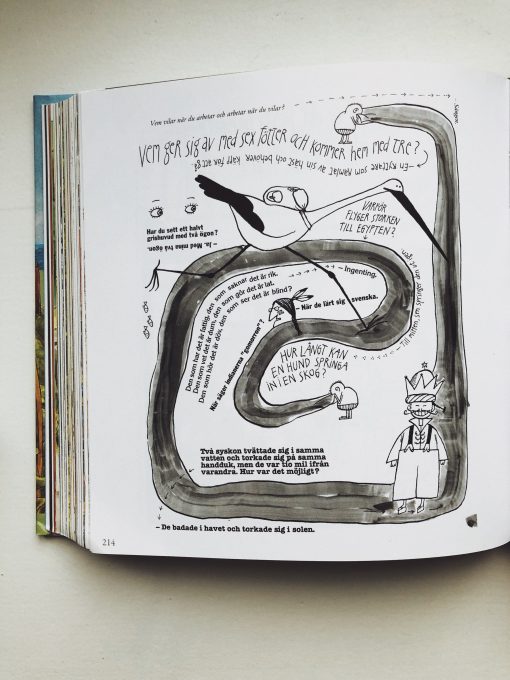 Vem vilar när du arbetar och arbetar när du vilar?
Sängen.
Vem ger sig av med sex fötter och kommer hem med tre?
– En ryttare som ramlat av sin häst och behöver käpp för att gå.
Har du sett ett halvt
grishuvud med två ögon?
– Ja. Med mina två ögon.
VARFÖR
FLYGER STORKEN
TILL EGYPTEN?
Den som har det är fattig, den som saknar det är rik.
Den som vet det är dum, den som gör det är lat.
Den som hör det är döv, den som ser det är blind?
– Ingenting.
När säger indianerna "gomorron"?
– När de lärt sig svenska.
HUR LÅNGT KAN
EN HUND SPRINGA
IN I EN SKOG?
– Till mitten, sen springer den ut igen.
Två syskon tvättade sig i samma
vatten och torkade sig på samma
handduk, men de var tio mil ifrån
varandra. Hur var det möjligt?
– De badade i havet och torkade sig i solen.
214